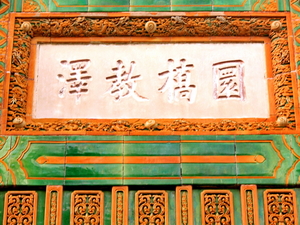 圜橋教澤